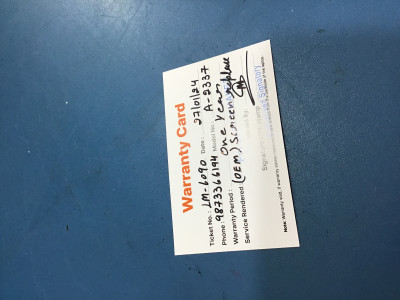 Warranty Card
Ticket No.: LM-6090 Date: 27/01/24
Phone: 9873366194 Model No: A-2337
Warranty Period: One Year
Service Rendered (OEM) Screen replace
Note: Warranty void, if warranty